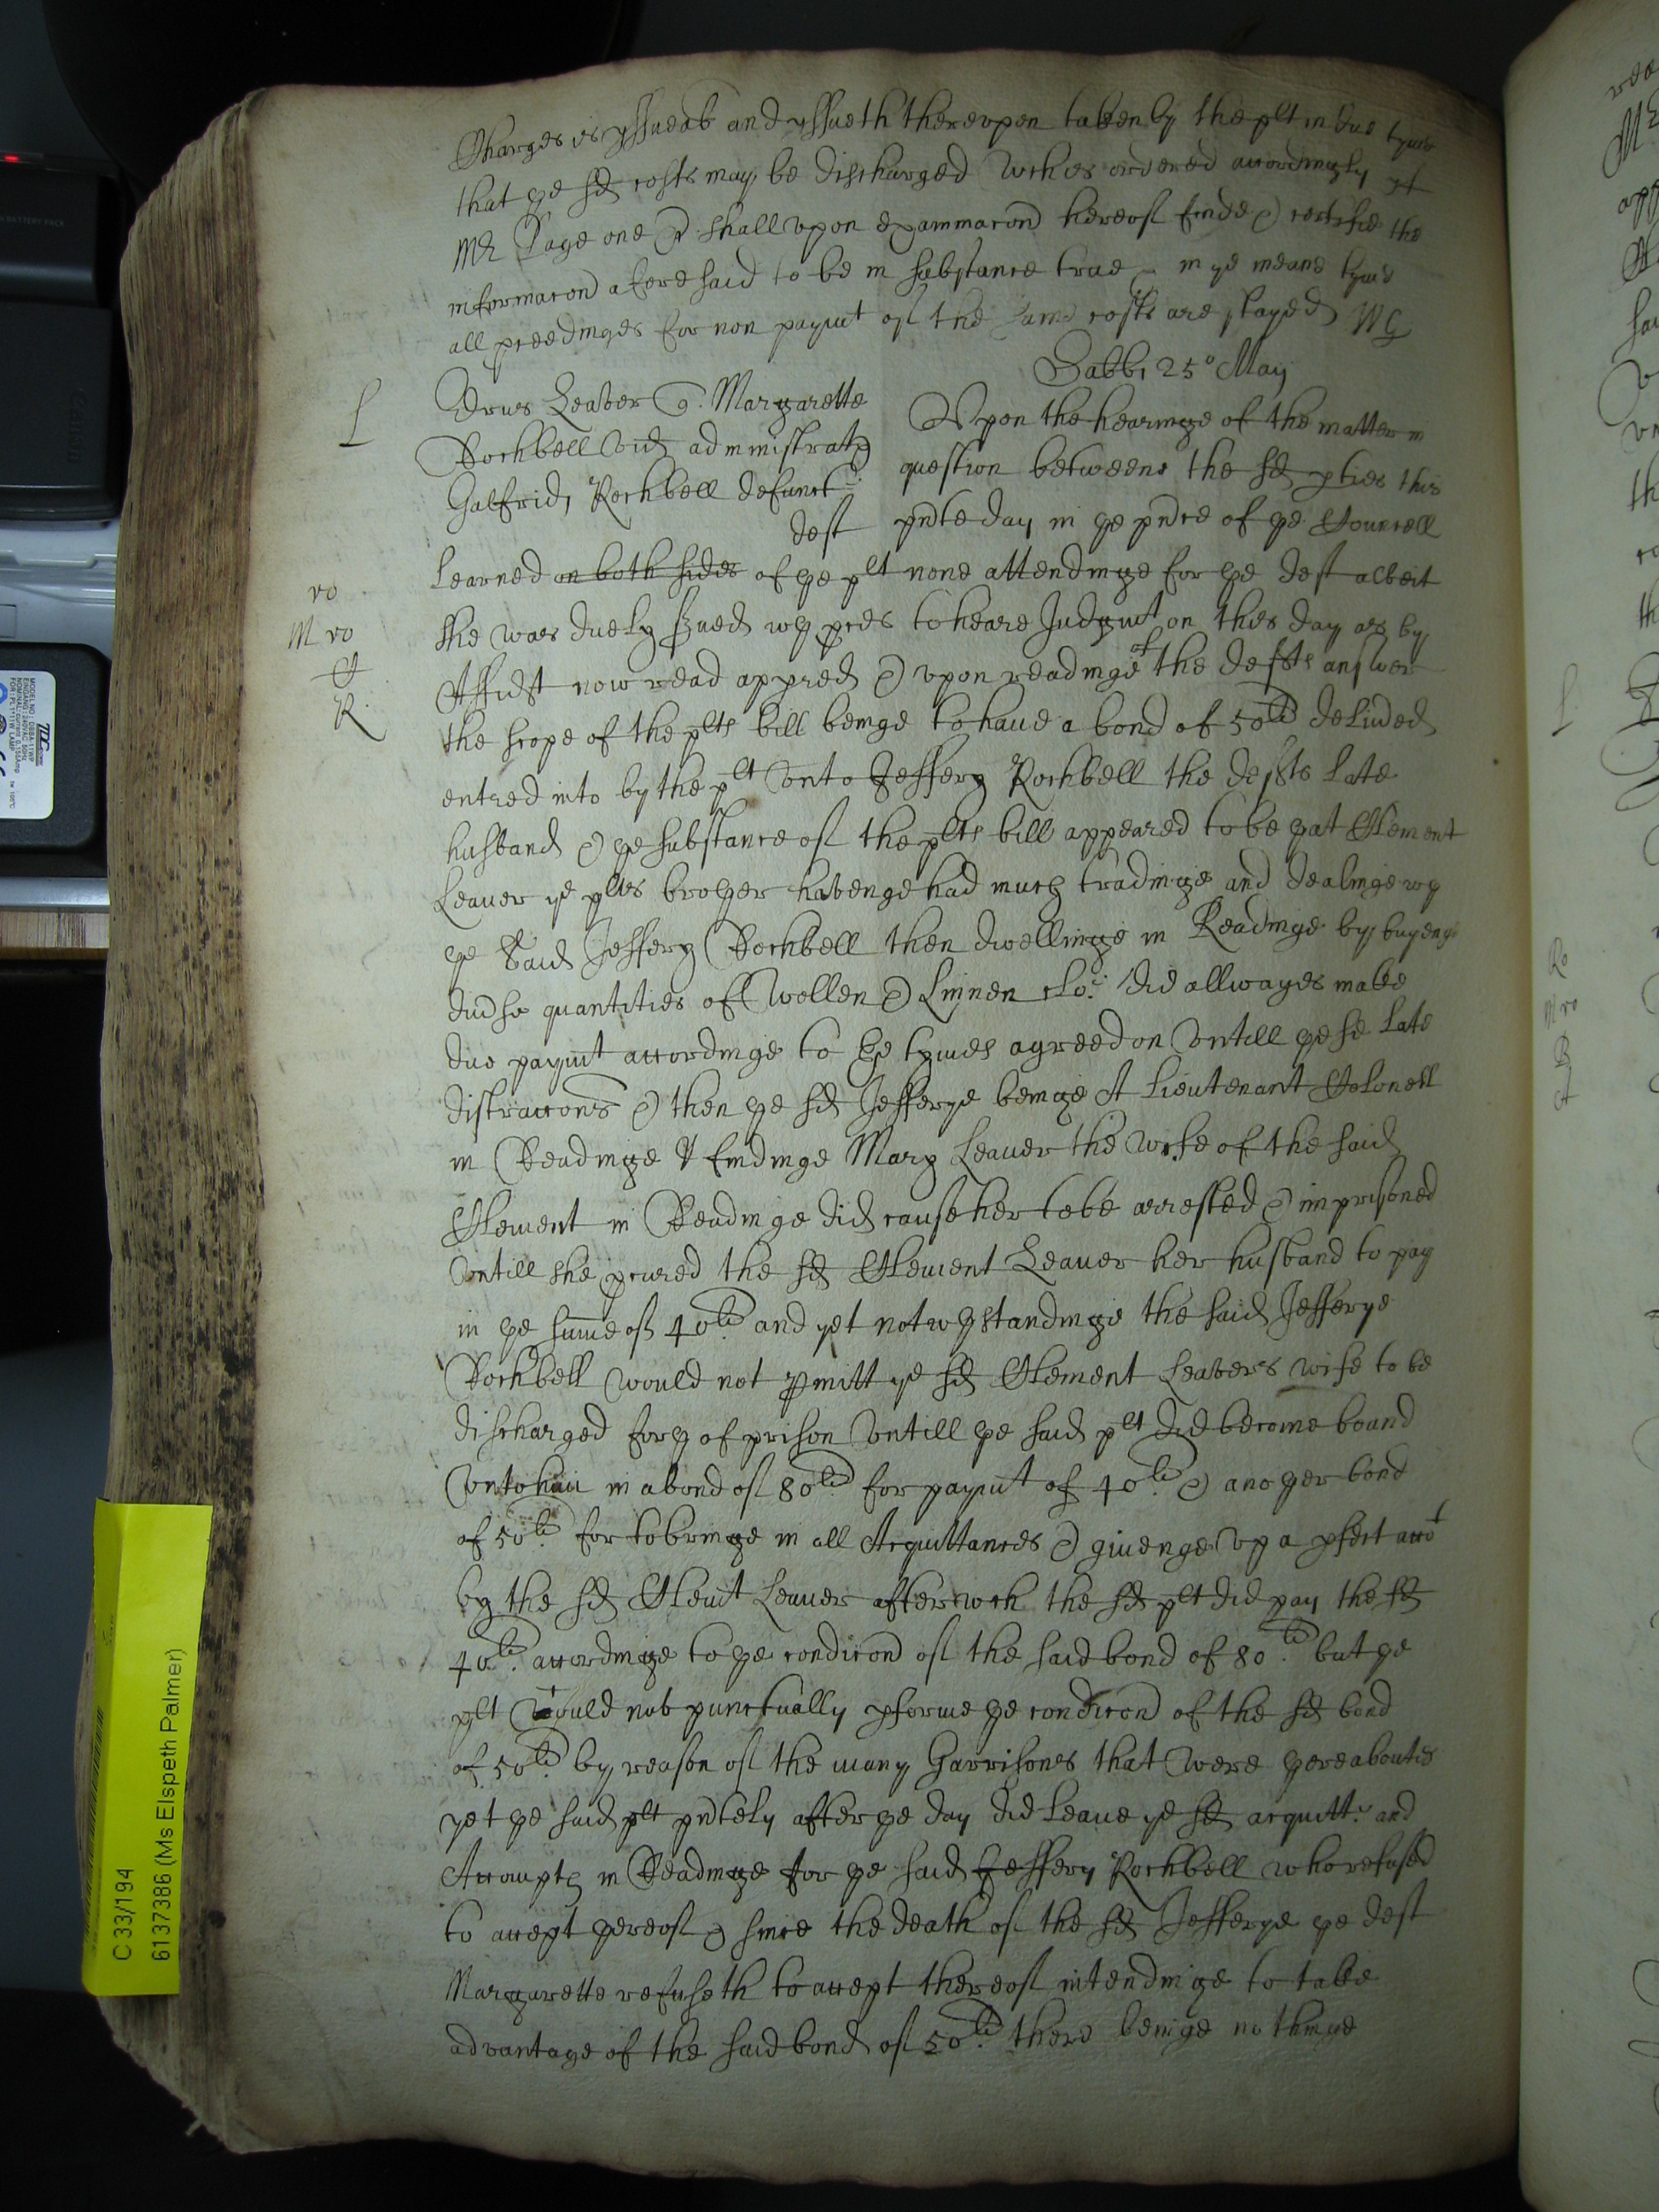 Charges is yssueab and yssueth therevpon taken by the plt in due tyme
that ye sd costs may be discharged wch is ordered accordingly yf
Mr Page one &c shall vpon exammacon hereof finde & certifie the
informacon aforesaid to be in substance true & in ye meane tyme
all pceedinges for non paymt of the same costs are stayed
Sabbi 25° May
L
Leaver q. Margarette
Rochbell vid administratr
Galfridi Rochbell defunct
deft
Vpon the hearinge of the matter in
question betweene the sd pties this
pnte day in ye pnce of ye Councell
learned on both sides of ye plt none attendinge for ye deft albeit
she was duely srued wth pces to heare Judgmt on this day as by
Affidt now read appred & vpon readinge of the defts answer
the scope of the plts bill beinge to haue a bond of 50li deliued
entred into by the plt vnto Jeffery Rochbell the defts late
husband & ye substance of the plts bill appeared to be yat Clement
Leauer ye plts brother havenge had much tradinge and dealinge wth
ye said Jeffery Rochbell then dwellinge in Readinge by buyenge
diuse quantities of wollen & Linnen clo: did allwayes make
due paymt accordinge to ye tymes agreed on vntill yese late
distraccons & then ye sd Jefferye beinge A Lieutenant Colonell
in Readinge & findinge Mary Leauer the wife of the said
Clement in Readinge did cause her to be arrested & imprisoned
vntill she pcured the sd Clement Leauer her husband to pay
in ye summe of 40li and yet notwthstandinge the said Jefferye
Rochbell would not pmitt ye sd Clement Leavers wife to be
discharged forth of prison vntill ye said plt did become bound
vnto him in a bond of 80li for paymt of 40li & another bond
of 50li for to bringe in all Acquittances & giuenge vp a pfect acct
by the sd Clemt Leauer after wch the sd plt did pay the sd
40li accordinge to ye condicon of the said bond of 80li but ye
plt could not punctually pforme ye condicon of the sd bond
of 50li by reason of the many Garrisones that were thereaboutes
yet ye said plt pntely after ye day did leaue ye sd acquitt: and
Accompts in Readinge for ye said Jeffery Rochbell who refused
to accept thereof & since the death of the sd Jefferye ye deft
Margarette refuseth to accept thereof intendinge to take
advantage of the said bond of 50li there beinge nothinge
ro
M ro
R
L
Ro
M ro
B
C 33/194
6137386 (Ms Elspeth Palmer)